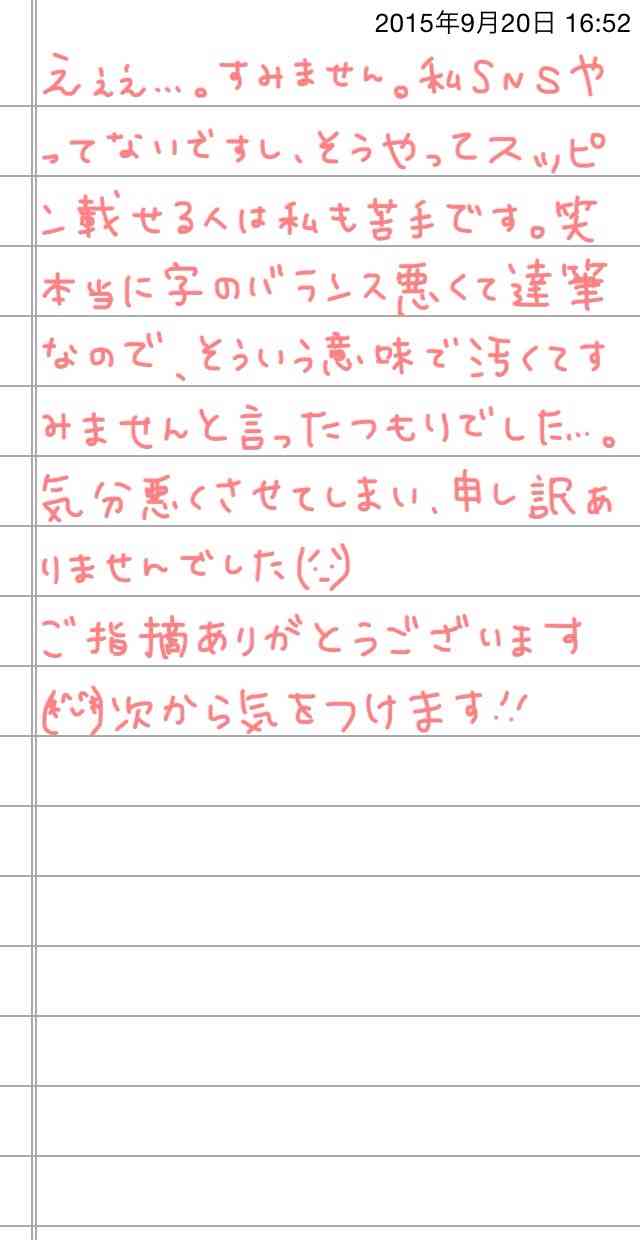 2015年9月20日 16:52
えぇぇ…。すみません。私SNSや
ってないですし、そうやってスッピ
ン載せる人は私も苦手です。笑
本当に字のバランス悪くて達筆
なので、そういう意味で汚くてす
みませんと言ったつもりでした…。
気分悪くさせてしまい、申し訳あ
りませんでした
ご指摘ありがとうございます
次から気をつけます!!